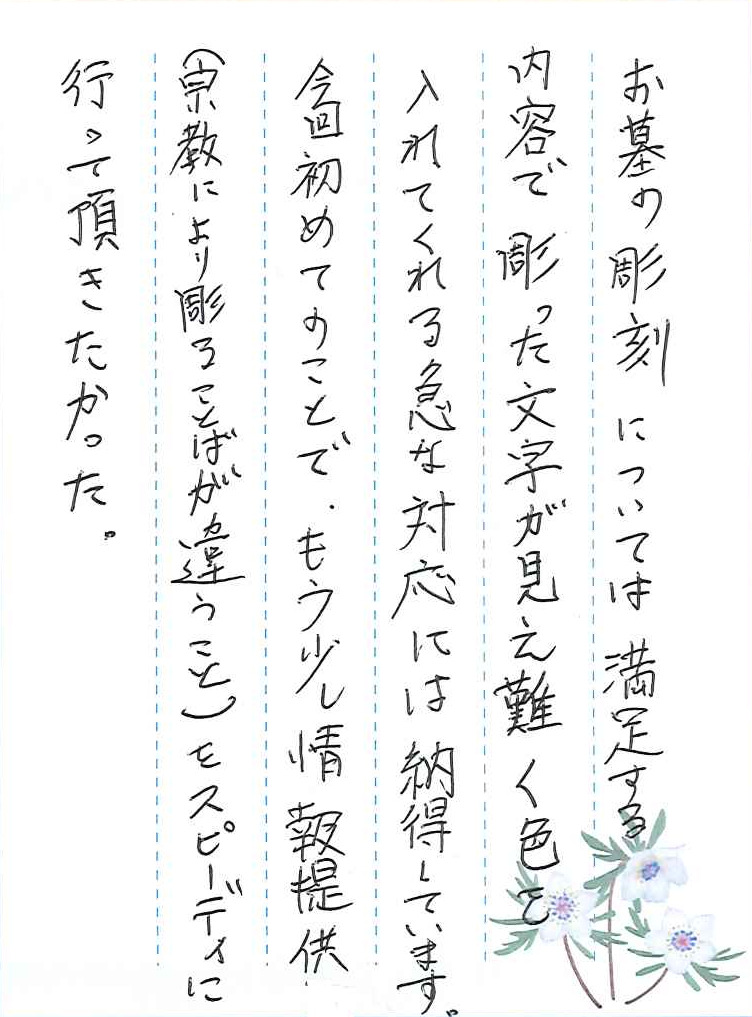 お墓の彫刻については満足する
内容で彫った文字が見え難く色を
入れてくれる急な対応には納得しています。
今回初めてのことで、もう少し情報提供
(宗教により彫ることばが違うこと)をスピーディに
行って頂きたかった。